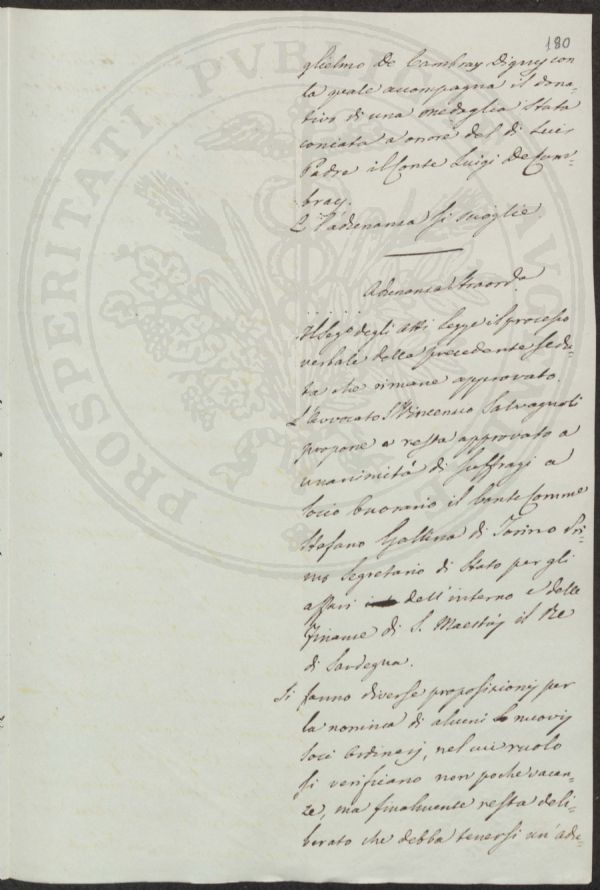 180
glielmo De Cambray Digny con
la quale accompagna il dona-
tivo di una medaglia stata
coniata a onore del di Lui
Padre il Conte Luigi De Cam-
bray.
E l'adunanza si scioglie
Adunanza Straorda.
Il Sego. degli Atti legge il processo
verbale della precedente sedu-
ta che rimane approvato.
L'Avvocato Vincenzio Salvagnoli
propone e resta approvato a
unanimità di suffragi a
socio onorario il Conte Comme
Stefano Gallina di Torino Pri-
mo Segretario di Stato per gli
affari dell'interno e delle
Finanze di S. Maestà il Re
di Sardegna.
Si fanno diverse proposizionij per
la nomina di alcuni nuovij
soci Ordinarij, nel cui ruolo
si verificano non poche vacan-
ze, ma finalmente resta deli-
berato che debba tenersi un'adu-
PROSPERITATI PVBLICAE AVG